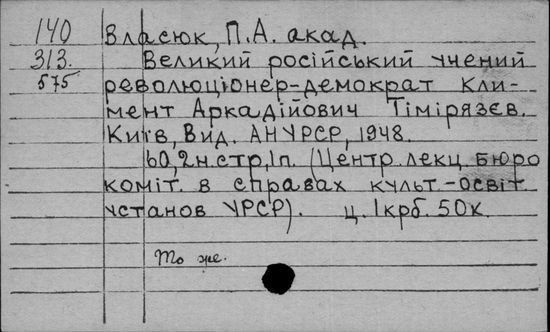 140 Власюк, П.А. акад.
313. Великий російський учений
575 революціонер-демократ Кли-
мент Аркадійович Тімірязєв.
Київ, Вид. АН УРСР, 1948.
60,2н.стр,1п. (Центр. лекц. бюро
коміт. в справах культ.-освіт
установ УРСР). ц. 1крб. 50к.
То же.